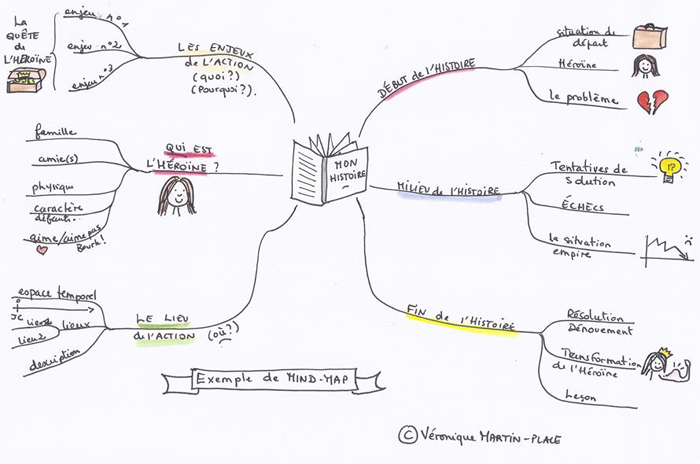 La
QUÊTE
de
L'HÉROÏNE
enjeu n°1
enjeu n°2
enjeu n°3
LES ENJEUX
de L'ACTION
(quoi?)
(Pourquoi?).
famille
amie(s)
physique
caractère
défauts..
aime/aime pas
Beurk!
QUI EST
L'HÉROÏNE ?
espace temporel
0
JC
lieu1
lieu2
lieux
description
LE LIEU
de l'ACTION (où?)
MON
HISTOIRE
DÉBUT de l'HISTOIRE
situation de
départ
Héroïne
le problème
MILIEU de l'HISTOIRE
Tentatives de
solution
!?
ÉCHECS
la situation
empire
FIN de l'HISTOIRE
Résolution
Dénouement
Transformation
de l'Héroïne
Leçon
Exemple de MIND-MAP
© Véronique MARTIN-PLACE